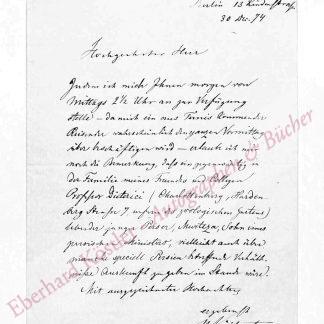 Berlin 13 Lindenstraße
30 Dec. 74
Hochgeehrter Herr
Indem ich mich Ihnen morgen von
Mittags 2½ Uhr an zur Verfügung
stelle – da mich ein aus Tunis kommender
Reisender wahrscheinlich den ganzen Vormittag
über beschäftigen wird – erlaube ich mir
noch die Bemerkung, daß ein gegenwärtig in
der Familie meines Freundes und Collegen
Professor Dieterici (Charlottenburg, Harden-
berg Strasse 7 unfern des zoologischen Gartens)
lebender junger Perser, Murteza, Sohn eines
persischen Ministers, vielleicht auch über
manche speciell Persien betreffende Verhält-
nisse Auskunft zu geben im Stande wäre.
Mit ausgezeichneter Hochachtung
ergebenst
Eberhard Köstler Autographen & Bücher